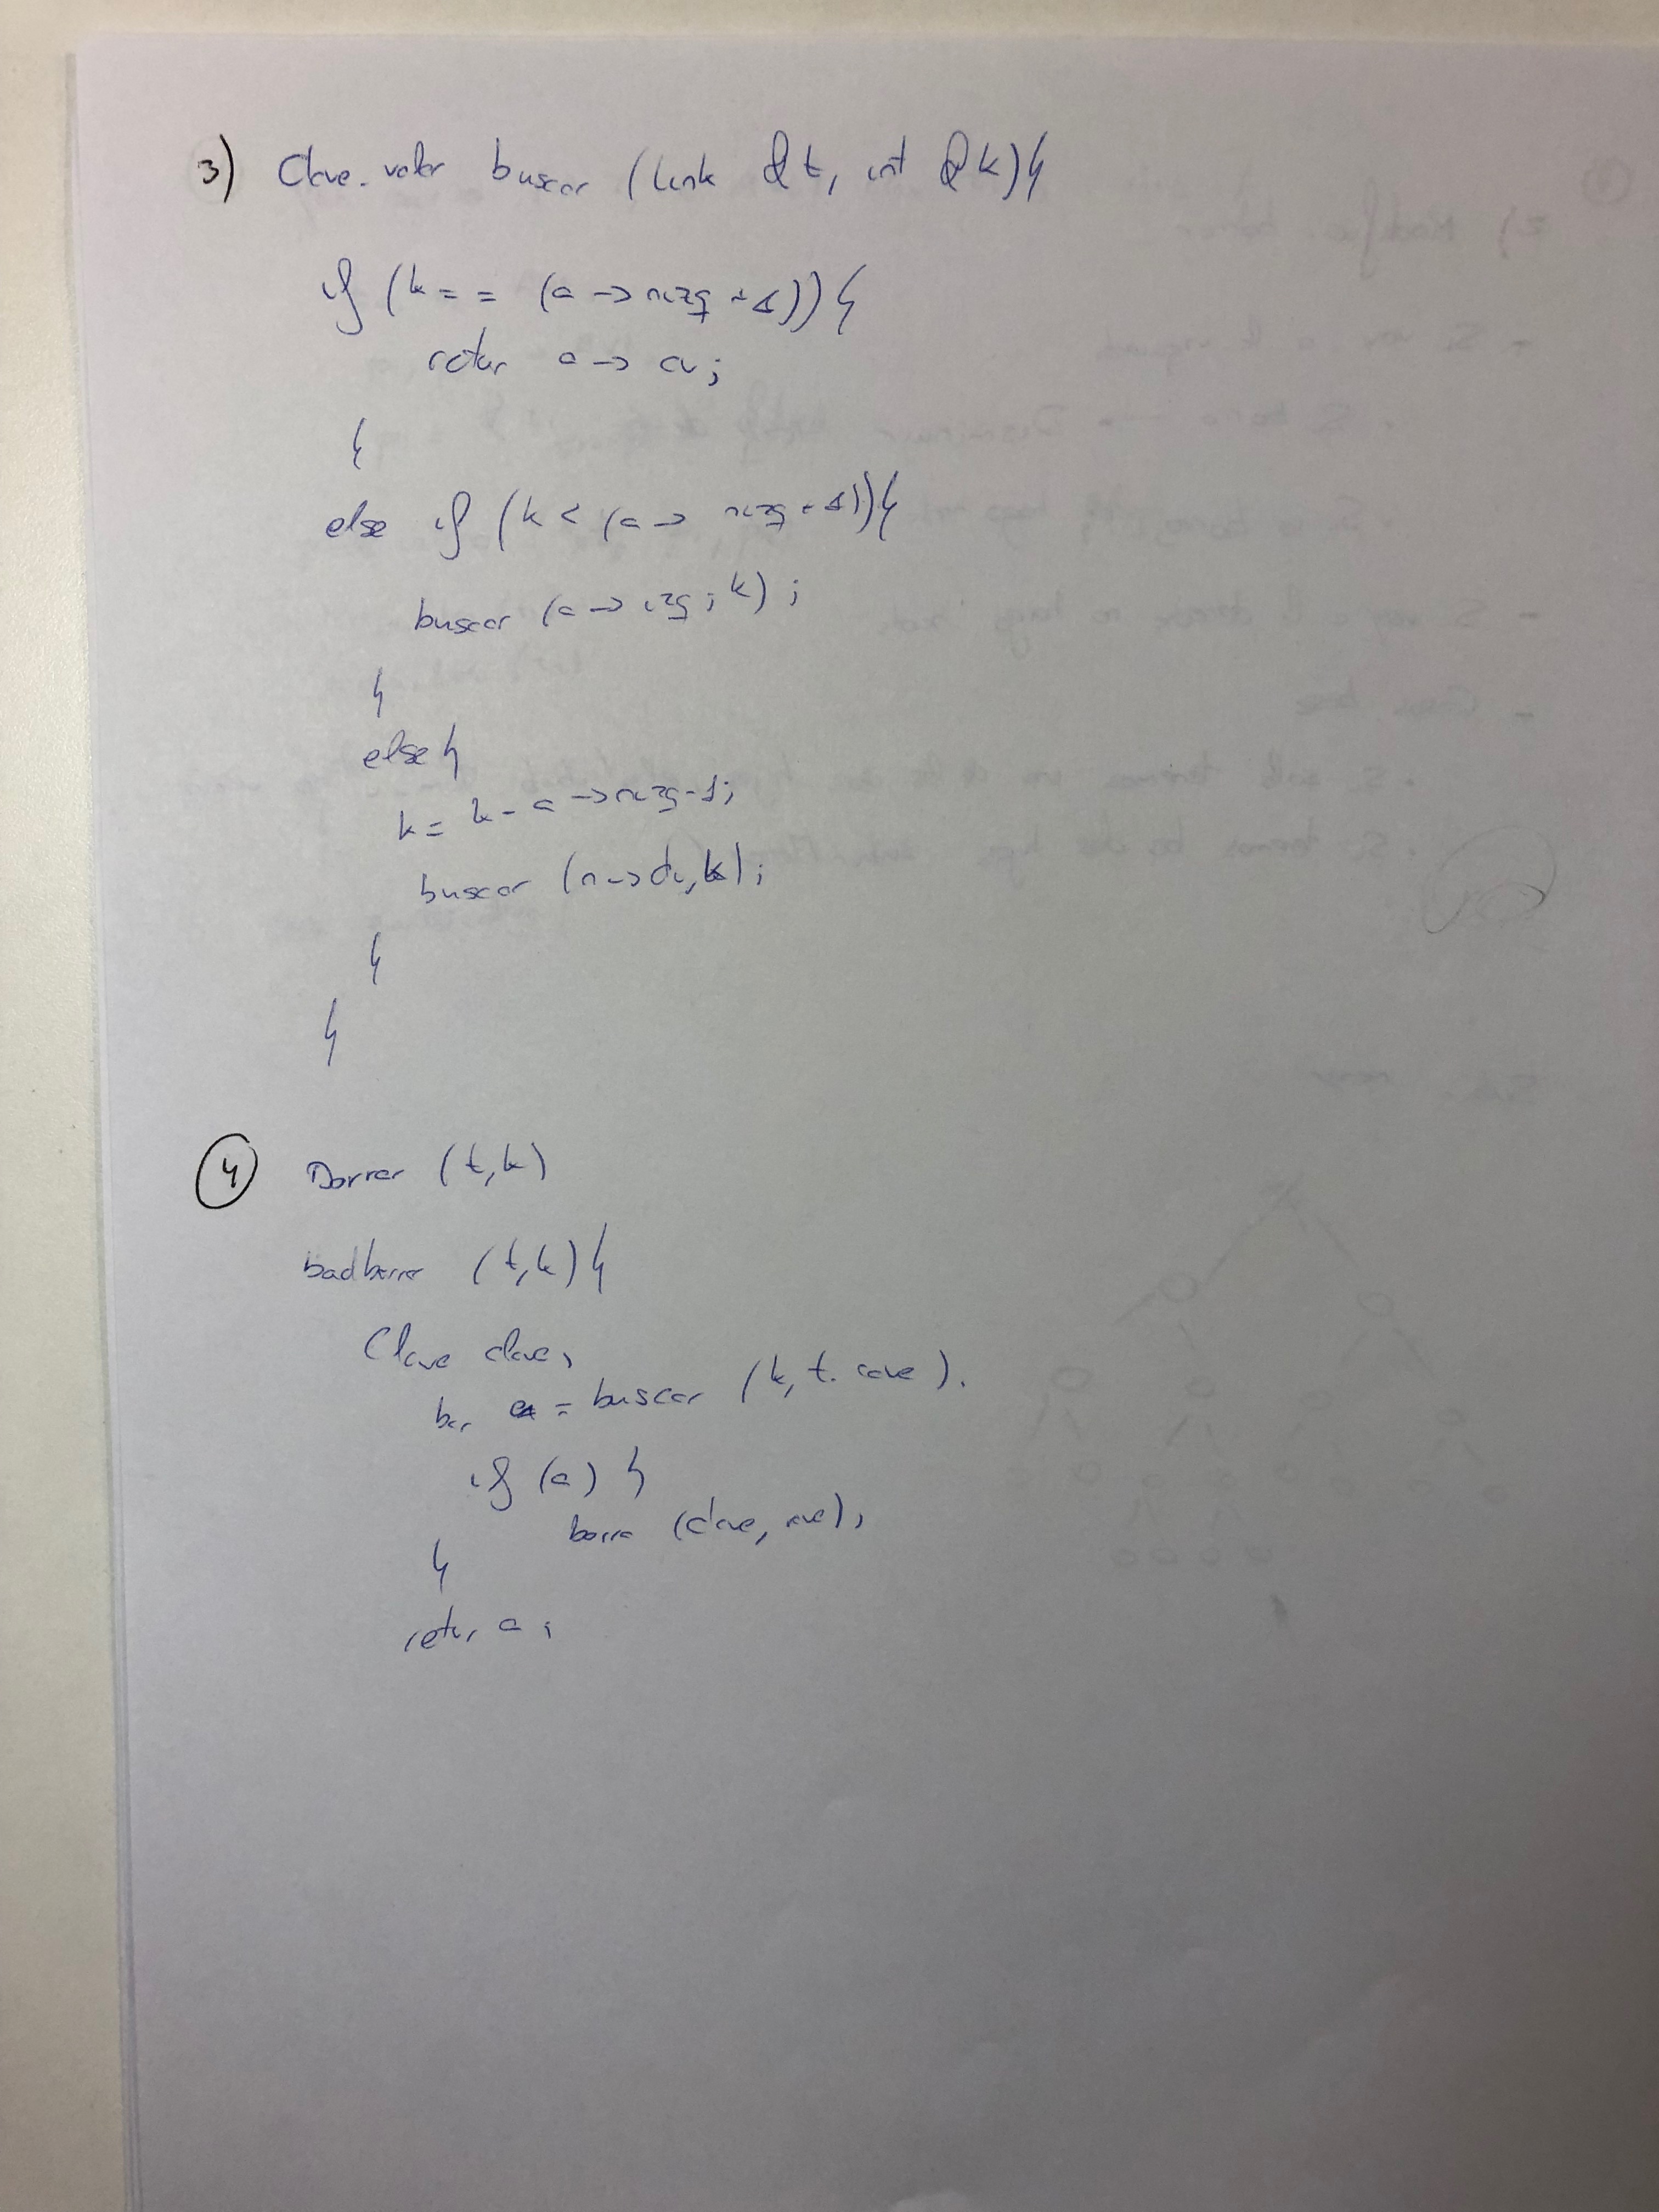 3) Clave-valor buscar (link &t, int &k){
if (k == (a -> nizq + 1)){
retur a -> cv;
}
else if (k < (a -> nizq + 1)){
buscar (a -> izq; k);
}
else {
k = k - a -> nizq - 1;
buscar (a -> dr, k);
}
}
4 Borrar (t, k)
bad borrar (t, k) {
Clave clave,
= buscar (k, t.
if (a) {
borra (clave,
}
retur a;